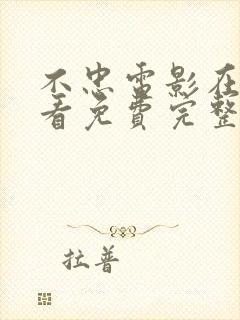 不忠雷影在
看免费完整
拉普